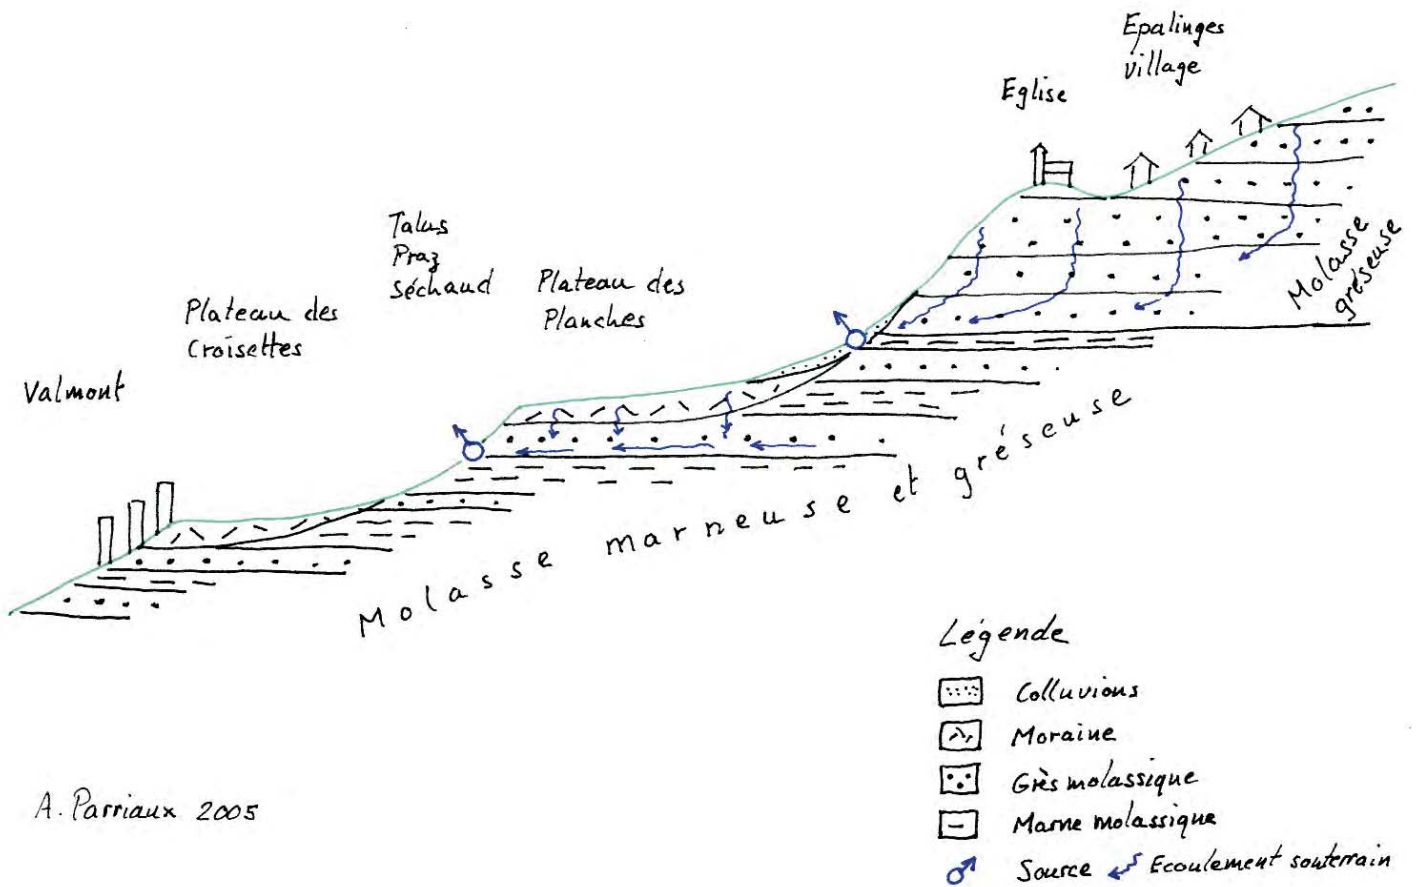 Epalinges
village
Eglise
Molasse
gréseuse
Talus
Praz
Séchaud
Plateau des
Planches
Plateau des
Croisettes
Valmont
Molasse marneuse et gréseuse
Légende
Colluvions
Moraine
Grès molassique
Marne molassique
Source Ecoulement souterrain
A. Parriaux 2005